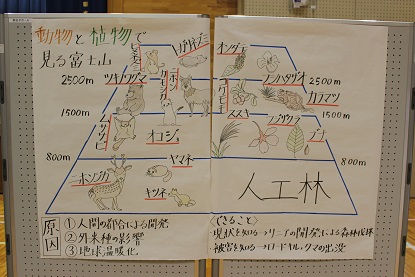 動物と植物で
見る富士山
オンタデ
2500m
ツキノワグマ
ホンドギツネ
フジハタザオ
2500m
カラマツ
1500m
ムササビ
オコジョ
ススキ
フジザクラ
ブナ
1500m
800m
ニホンジカ
ヤマネ
キツネ
800m
人工林
原因
①人間の都合による開発
②外来種の影響
③地球温暖化
〈できること〉
現状を知る→リニアの開発による森林伐採
被害を知る→ロードキル・クマの出没